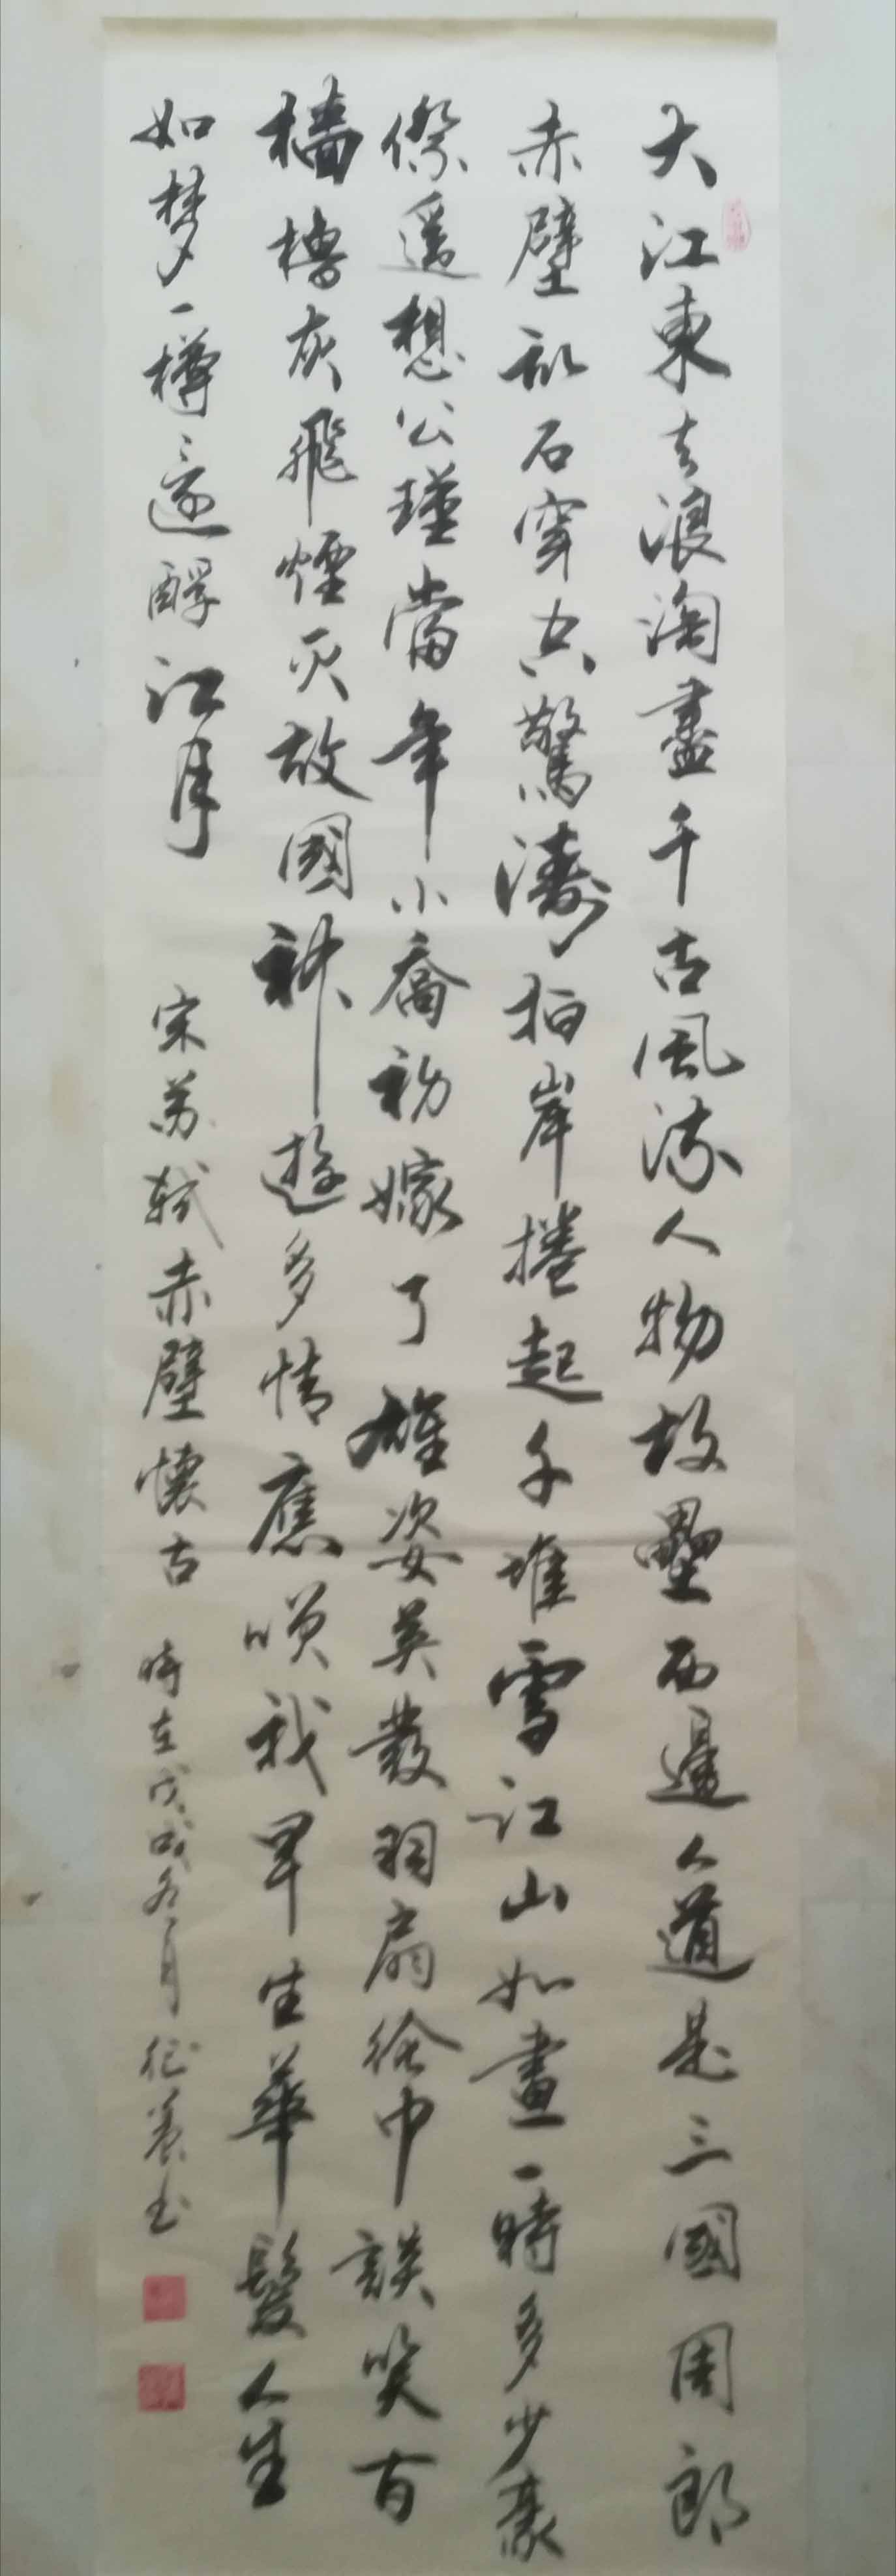 大江東去浪淘盡千古風流人物故壘西邊人道是三國周郎
赤壁乱石穿空驚濤拍岸捲起千堆雪江山如畫一時多少豪
傑遥想公瑾當年小喬初嫁了雄姿英發羽扇綸巾談笑
檣櫓灰飛煙灭故國神遊多情應咲我早生華髮人生
如梦一樽還酹江月 宋苏軾赤壁懷古 時在戊戌冬月 书